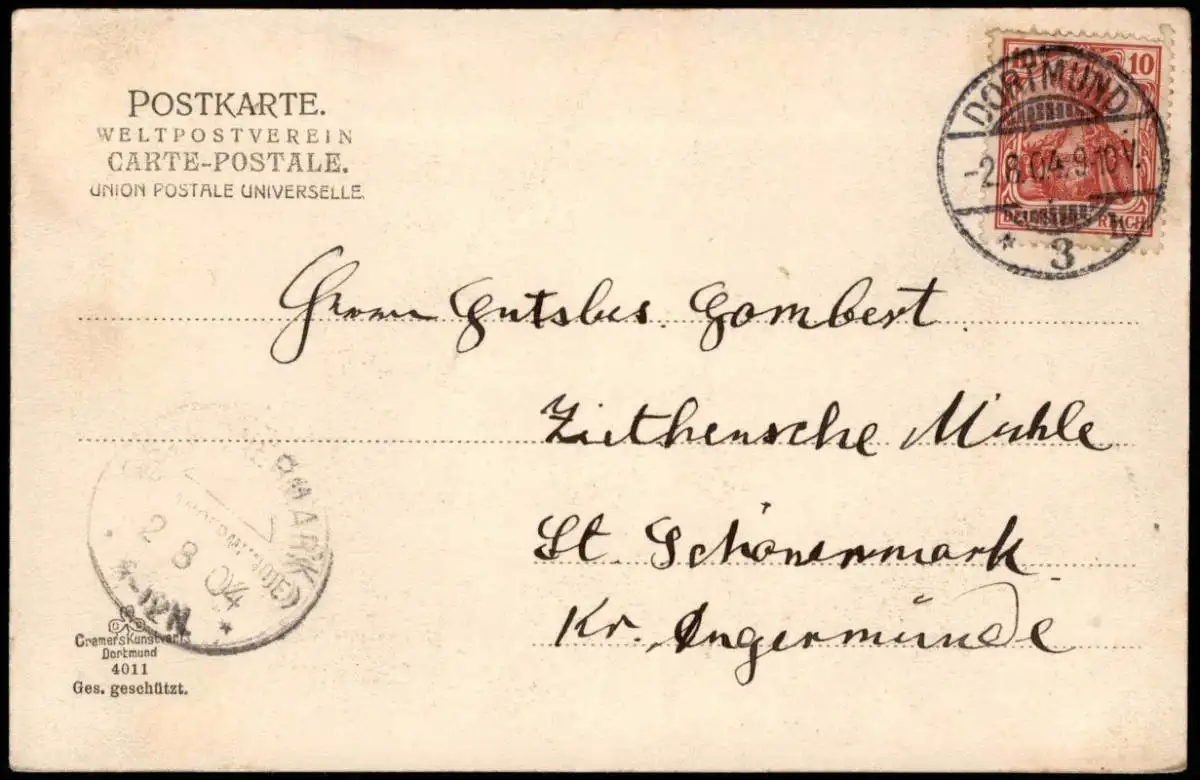 POSTKARTE.
WELTPOSTVEREIN
CARTE-POSTALE.
UNION POSTALE UNIVERSELLE.
10
DEUTSCHES REICH
DORTMUND
-2.8.04.9-10V.
* 3 h
Herrn Gutsbes. Gombert
Ziethensche Mühle
St. Schönermark
Kr. Angermünde
MARK
(ANGERMÜNDE)
2 8 04
-12N
*
Cramers Kunstverl.
Dortmund
4011
Ges. geschützt.